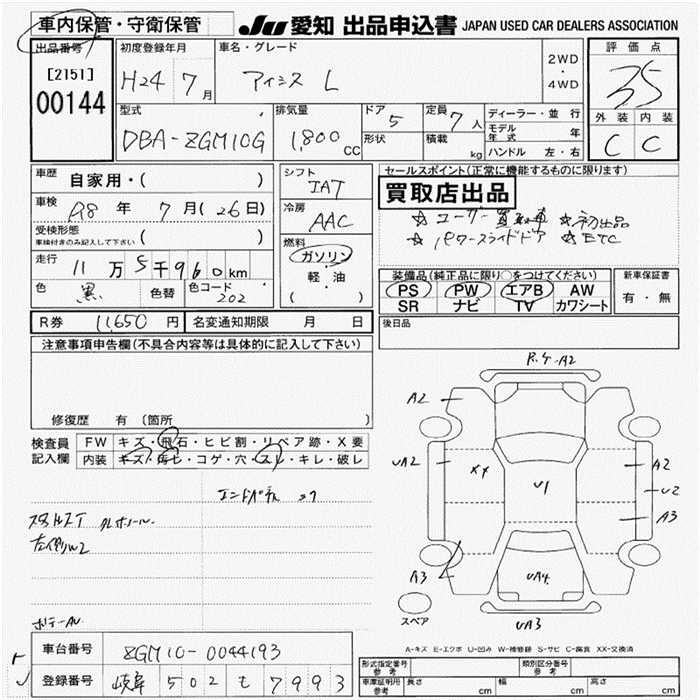 車内保管・守衛保管
JU 愛知 出品申込書 JAPAN USED CAR DEALERS ASSOCIATION
出品番号
[2151]
00144
初度登録年月
H24 7月
車名・グレード
アイシス L
2WD
・
4WD
評価点
3.5
外装 内装
C C
型式
DBA-ZGM10G
排気量
1,800 CC
ドア
5
形状
定員
7 人
積載
kg
ディーラー・並行
モデル年式 年
ハンドル 左・右
車歴
自家用・( )
車検
R8 年 7 月(26日)
受検形態
車検付きのみ記入して下さい ( )
走行
11 万 5 千 960 km
色
黒
色替
色コード
202
シフト
IAT
冷房
AAC
燃料
ガソリン
・
軽・油
( )
セールスポイント(正常に機能するものに限ります)
買取店出品
☆ユーザー買取車 ☆初出品
☆パワースライドドア ☆ETC
装備品(純正品に限り○をつけてください)
PS PW エアB AW
SR ナビ TV カワシート
新車保証書
有・無
R券 11,650 円
名変通知期限 月 日
後日品
注意事項申告欄(不具合内容等は具体的に記入して下さい)
修復歴 有 〔箇所 〕
検査員
記入欄
FW キズ・飛石・ヒビ割・リペア跡・X要
内装 キズ・汚レ・コゲ・穴・スレ・キレ・破レ
左側W2
A2
UA2
XX
U1
A2
U2
A3
A3
UA4
UA3
スペア
A-キズ E-エクボ U-凹み W-補修跡 S-サビ C-腐蝕 XX-交換済
車台番号
ZGM10-0044193
登録番号
岐阜 502 も 7993
形式指定番号
参考
類別区分番号
参考
車庫証明用
参考
長さ cm
幅 cm
高さ cm